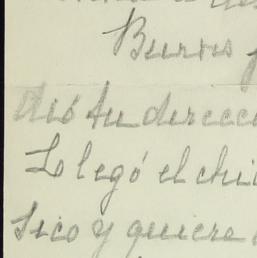 Burns
dió tu direcc
Lo legó el chi
sico y quiere